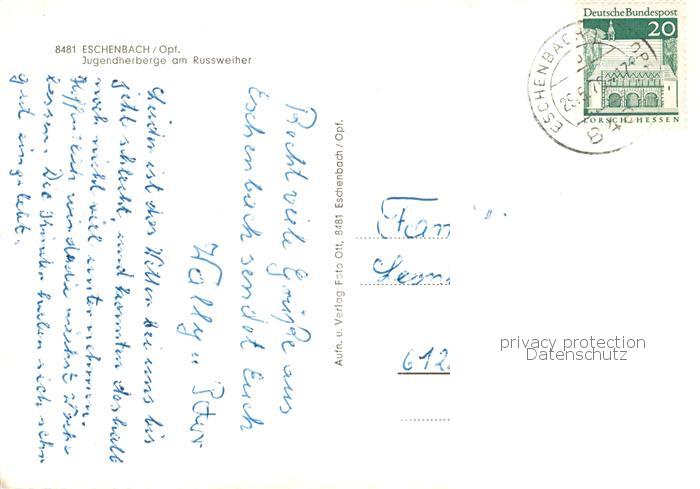 8481 ESCHENBACH / Opf.
Jugendherberge am Russweiher
Deutsche Bundespost
20
LORSCH HESSEN
ESCHENBACH
848
Recht viele Grüße aus
Eschenbach sendet Euch
Wally u. Peter
Leider ist das Wetter bei uns bis
jetzt schlecht, und konnten deshalb
noch nicht viel unternehmen.
Hoffentlich wird die nächste Woche
besser. Die Kinder haben sich sehr
gut eingelebt.
Aufn. u. Verlag Foto Ott, 8481 Eschenbach / Opf.
Fam
612
privacy protection
Datenschutz